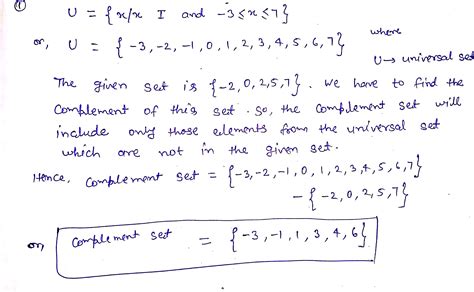 ① U = {x/x I and -3 ≤ x ≤ 7}
or, U = {-3, -2, -1, 0, 1, 2, 3, 4, 5, 6, 7} where
U → universal set
The given set is {-2, 0, 2, 5, 7}. We have to find the
Complement of this set. So, the Complement set will
include only those elements from the universal set
which are not in the given set.
Hence, Complement set = {-3, -2, -1, 0, 1, 2, 3, 4, 5, 6, 7}
- {-2, 0, 2, 5, 7}
or, Complement set = {-3, -1, 1, 3, 4, 6}